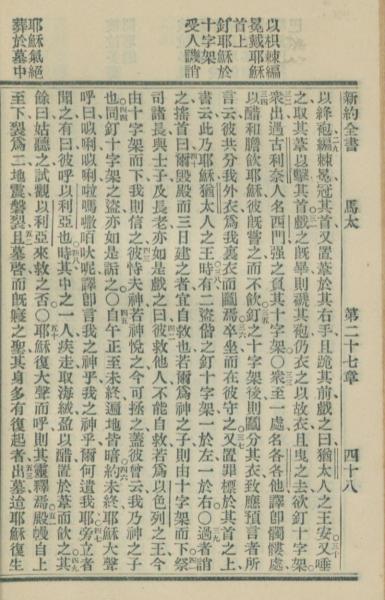 以枳棘編
冕戴耶穌
首上
釘耶穌於
十字架
受人譏誚
耶穌氣絕
葬於墓中
新約全書 馬太 第二十七章 四十八
以絳袍編棘冕冠其首又置葦於其右手且跪其前戲之曰猶太人之王安又唾
之取其葦以擊其首戲之旣畢則褫其袍仍衣之以故衣且曳之去欲釘十字架
衆出遇古利奈人名西門强之負其十字架〇衆至一處名各各他譯卽髑髏處
以醋和膽飲耶穌彼旣嘗之而不飲釘之十字架後則鬮分其衣致應預言者所
言云彼共分我外衣爲我裏衣而鬮焉卒坐而在彼守之又置罪標於其首之上
書云此乃耶穌猶太人之王時有二盜偕之釘十字架一於左一於右〇過者誚
之搖首曰爾毀殿而三日建之者宜自救也若爾爲神之子則由十字架而下祭
司諸長與士子及長老亦如是戲之曰彼救他人不能自救若爲以色列之王今
由十字架而下我則信之彼恃夫神若神悅之今可拯之蓋彼曾云我乃神之子
也同釘十字架之盜亦如是詬之〇自午正至未終遍地皆暗約未終耶穌大聲
呼曰唎唎啦嗎撒咟呔呢譯卽言我之神乎我之神乎爾何遺我耶旁立者
聞之有曰彼呼以利亞也時其中之一人疾走取海絨盈以醋置於葦而飲之其
餘曰姑聽之試觀以利亞來救之否〇耶穌復大聲而呼則其靈釋焉殿幔自上
至下裂爲二地震磐裂且墓啓而旣寢之聖其身多有復起者出墓迨耶穌復生